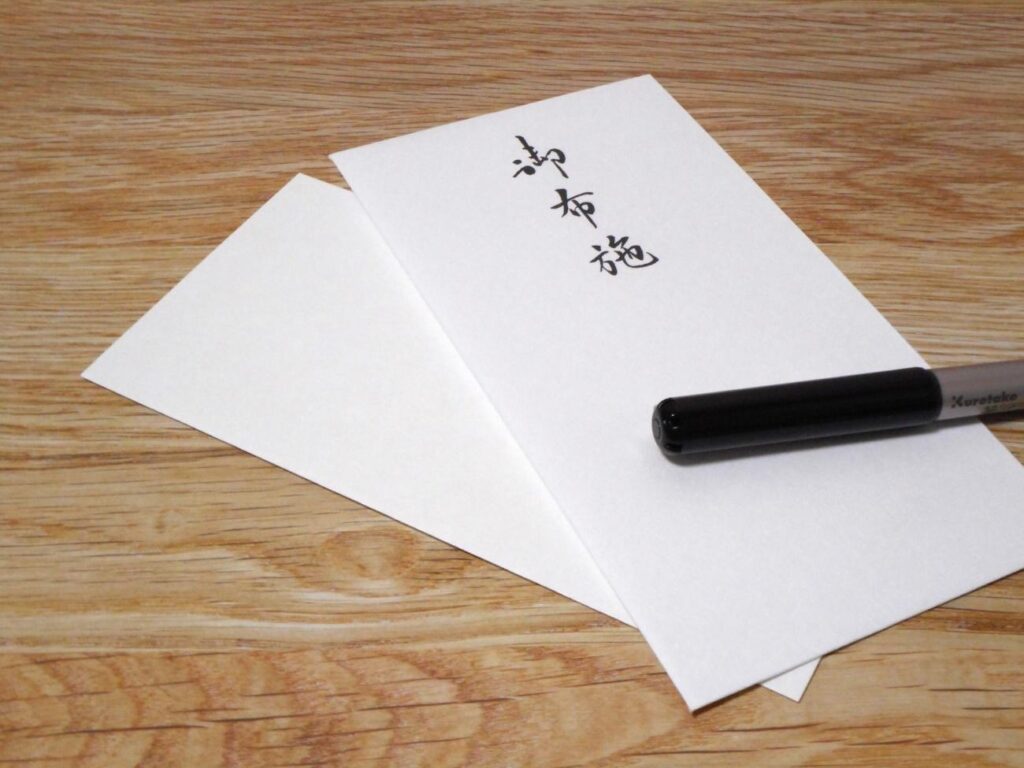 御布施
Kuretake